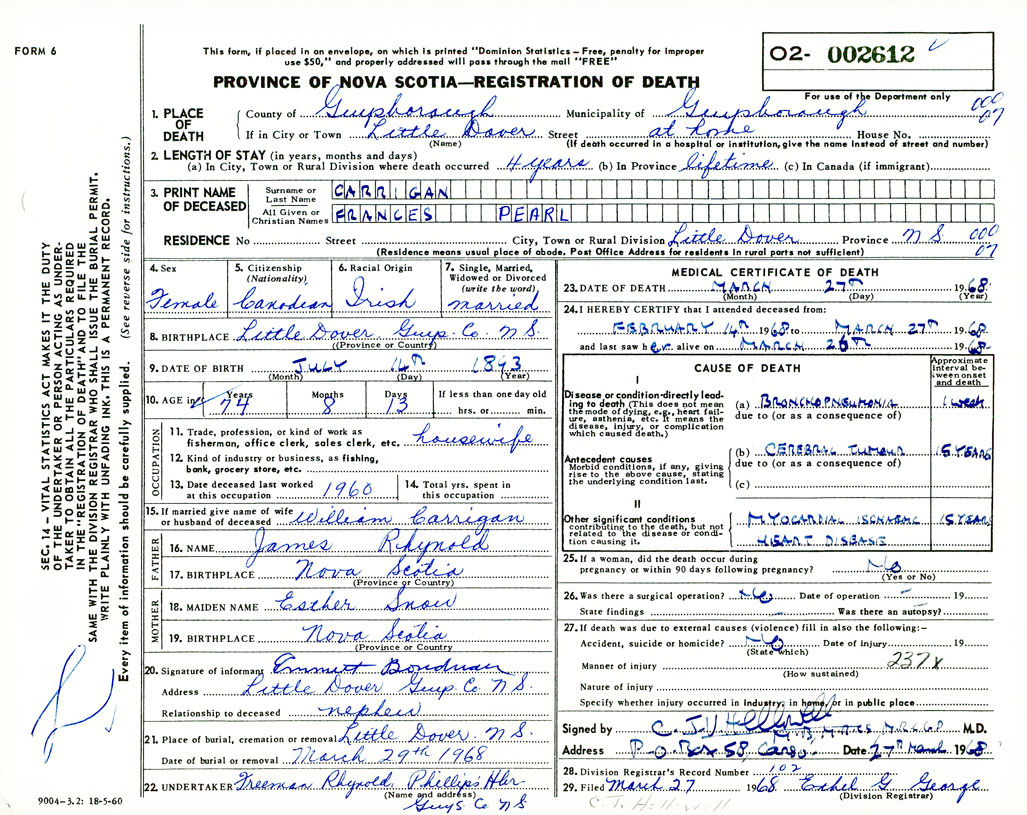 FORM 6
This form, if placed in an envelope, on which is printed "Dominion Statistics – Free, penalty for improper
use $50," and properly addressed will pass through the mail "FREE"
O2- 002612
PROVINCE OF NOVA SCOTIA—REGISTRATION OF DEATH
For use of the Department only
1. PLACE OF DEATH
County of Guysborough Municipality of Guysborough 000 07
If in City or Town Little Dover Street at home House No.
(Name) (If death occurred in a hospital or institution, give the name instead of street and number)
2. LENGTH OF STAY (in years, months and days)
(a) In City, Town or Rural Division where death occurred 4 years (b) In Province lifetime (c) In Canada (if immigrant)
3. PRINT NAME OF DECEASED
Surname or Last Name CARRIGAN
All Given or Christian Names FRANCES PEARL
RESIDENCE No Street City, Town or Rural Division Little Dover Province N S 000 07
(Residence means usual place of abode. Post Office Address for residents in rural parts not sufficient)
4. Sex Female
5. Citizenship (Nationality) Canadian
6. Racial Origin Irish
7. Single, Married, Widowed or Divorced (write the word) married
8. BIRTHPLACE Little Dover Guys. Co. N S.
((Province or Country)
9. DATE OF BIRTH JULY 14TH 1893
(Month) (Day) (Year)
10. AGE in Years 74 Months 8 Days 13 If less than one day old hrs. or min.
OCCUPATION
11. Trade, profession, or kind of work as
fisherman, office clerk, sales clerk, etc. housewife
12. Kind of industry or business, as fishing,
bank, grocery store, etc.
13. Date deceased last worked
at this occupation 1960
14. Total yrs. spent in
this occupation
15. If married give name of wife
or husband of deceased William Carrigan
FATHER
16. NAME James Rhynold
17. BIRTHPLACE Nova Scotia
(Province or Country)
MOTHER
18. MAIDEN NAME Esther Snow
19. BIRTHPLACE Nova Scotia
(Province or Country
20. Signature of informant Emmett
Address Little Dover Guys. Co N S.
Relationship to deceased nephew
21. Place of burial, cremation or removal Little Dover N.S.
Date of burial or removal March 29th 1968
22 UNDERTAKER Freeman Rhynold Phillip's Hbr
(Name and address)
Guys Co N S
MEDICAL CERTIFICATE OF DEATH
23. DATE OF DEATH MARCH 27TH 1968
(Month) (Day) (Year)
24. I HEREBY CERTIFY that I attended deceased from:
FEBRUARY 14TH 1968 to MARCH 27TH 1968
and last saw her alive on MARCH 26TH 1968
CAUSE OF DEATH
Approximate interval between onset and death
I
Disease or condition directly leading to death (This does not mean the mode of dying, e.g., heart failure, asthenia, etc. It means the disease, injury, or complication which caused death.)
(a) BRONCHOPNEUMONIA 1 week
due to (or as a consequence of)
Antecedent causes
Morbid conditions, if any, giving rise to the above cause, stating the underlying condition last.
(b) CEREBRAL TUMOUR 15 YEARS
due to (or as a consequence of)
(c)
II
Other significant conditions
contributing to the death, but not related to the disease or condition causing it.
MYOCARDIAL ISCHAEMIC 15 YEARS
HEART DISEASE
25. If a woman, did the death occur during
pregnancy or within 90 days following pregnancy? No
(Yes or No)
26. Was there a surgical operation? No Date of operation – 19
State findings Was there an autopsy?
27. If death was due to external causes (violence) fill in also the following:–
Accident, suicide or homicide? No Date of Injury 19
(State which)
Manner of injury 237x
(How sustained)
Nature of injury
Specify whether injury occurred in Industry, in home, or in public place
Signed by C. J. Helliwell M.B. M.R.C.S. M.R.C.G.P M.D.
Address P.O. Box 58, Canso Date 27TH March 1968
28. Division Registrar's Record Number 102
29. Filed March 27 1968 Ethel G George
(Division Registrar)
C. J. Helliwell
9004–3.2: 18-5-60
SEC. 14 – VITAL STATISTICS ACT MAKES IT THE DUTY
OF THE UNDERTAKER OR PERSON ACTING AS UNDER-
TAKER TO OBTAIN ALL THE PARTICULARS REQUIRED
IN THE "REGISTRATION OF DEATH" AND TO FILE THE
SAME WITH THE DIVISION REGISTRAR WHO SHALL ISSUE THE BURIAL PERMIT.
WRITE PLAINLY WITH UNFADING INK. THIS IS A PERMANENT RECORD.
Every item of information should be carefully supplied. (See reverse side for instructions.)